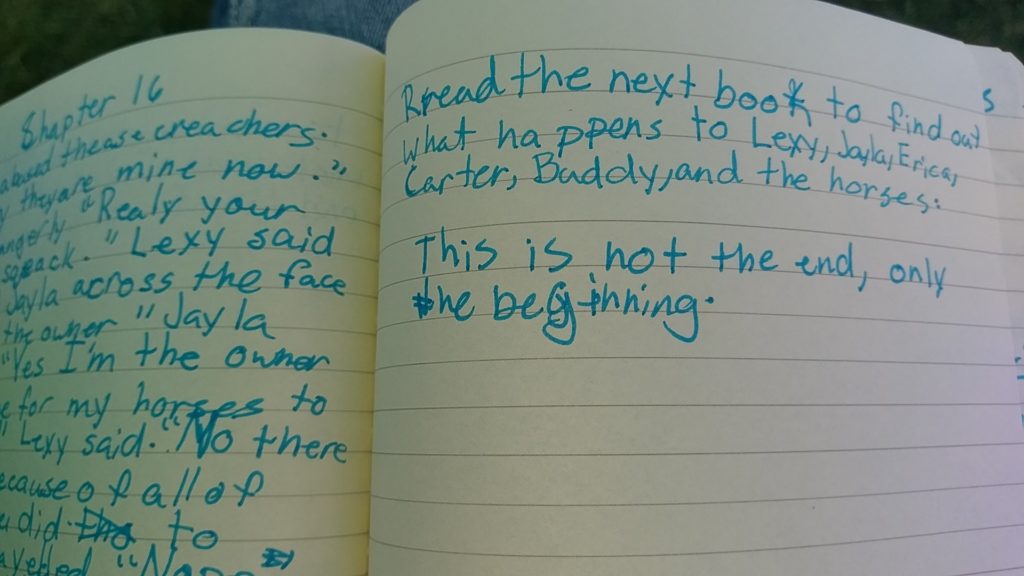 Chapter 16
abused thease creachers.
they are mine now."
angerly "Realy your
speack. "Lexy said
Jayla across the face
the owner "Jayla
"Yes I'm the owner
for my horses to
" Lexy said. "No there
ecause of all of
did to
ayelled "Nooo
Rread the next book to find out
what happens to Lexy, Jayla, Erica,
Carter, Buddy, and the horses.
This is not the end, only
the beginning.
s